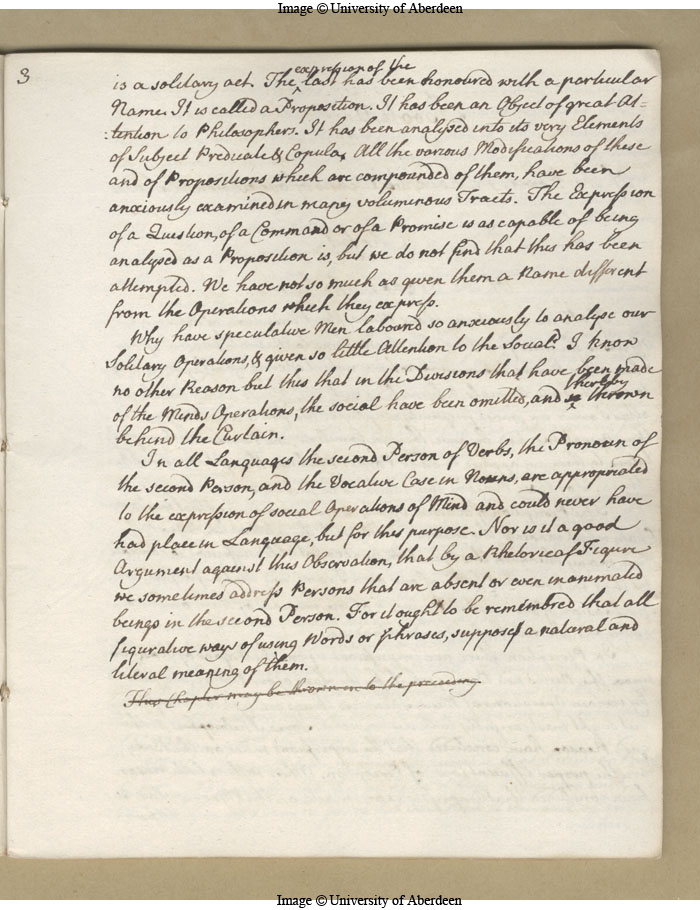 Image © University of Aberdeen
3
is a solitary act. The expression of the last has been honoured with a particular
Name. It is called a Proposition. It has been an Object of great At=
:tention to Philosophers. It has been analysed into its very Elements
of Subject Predicate & Copula. All the various Modifications of these
and of Propositions which are compounded of them, have been
anxiously examined in many voluminous Tracts. The Expression
of a Question, of a Command or of a Promise is as capable of being
analysed as a Proposition is, but we do not find that this has been
attempted. We have not so much as given them a Name different
from the Operations which they express.
Why have speculative Men laboured so anxiously to analyse our
Solitary Operations, & given so little Attention to the Social? I know
no other Reason but this that in the Divisions that have been made
of the Minds Operations, the social have been omitted, and thereby thrown
behind the Curtain.
In all Languages the second Person of Verbs, the Pronoun of
the second Person, and the Vocative Case in Nouns, are appropriated
to the expression of social Operations of Mind and could never have
had place in Language, but for this purpose. Nor is it a good
Argument against this Observation, that by a Rhetorical Figure
we sometimes address Persons that are absent or even inanimated
beings in the second Person. For it ought to be remembred that all
figurative ways of using Words or phrases, suppose a natural and
literal meaning of them.
This Chapter may be thrown in to the preceeding
Image © University of Aberdeen